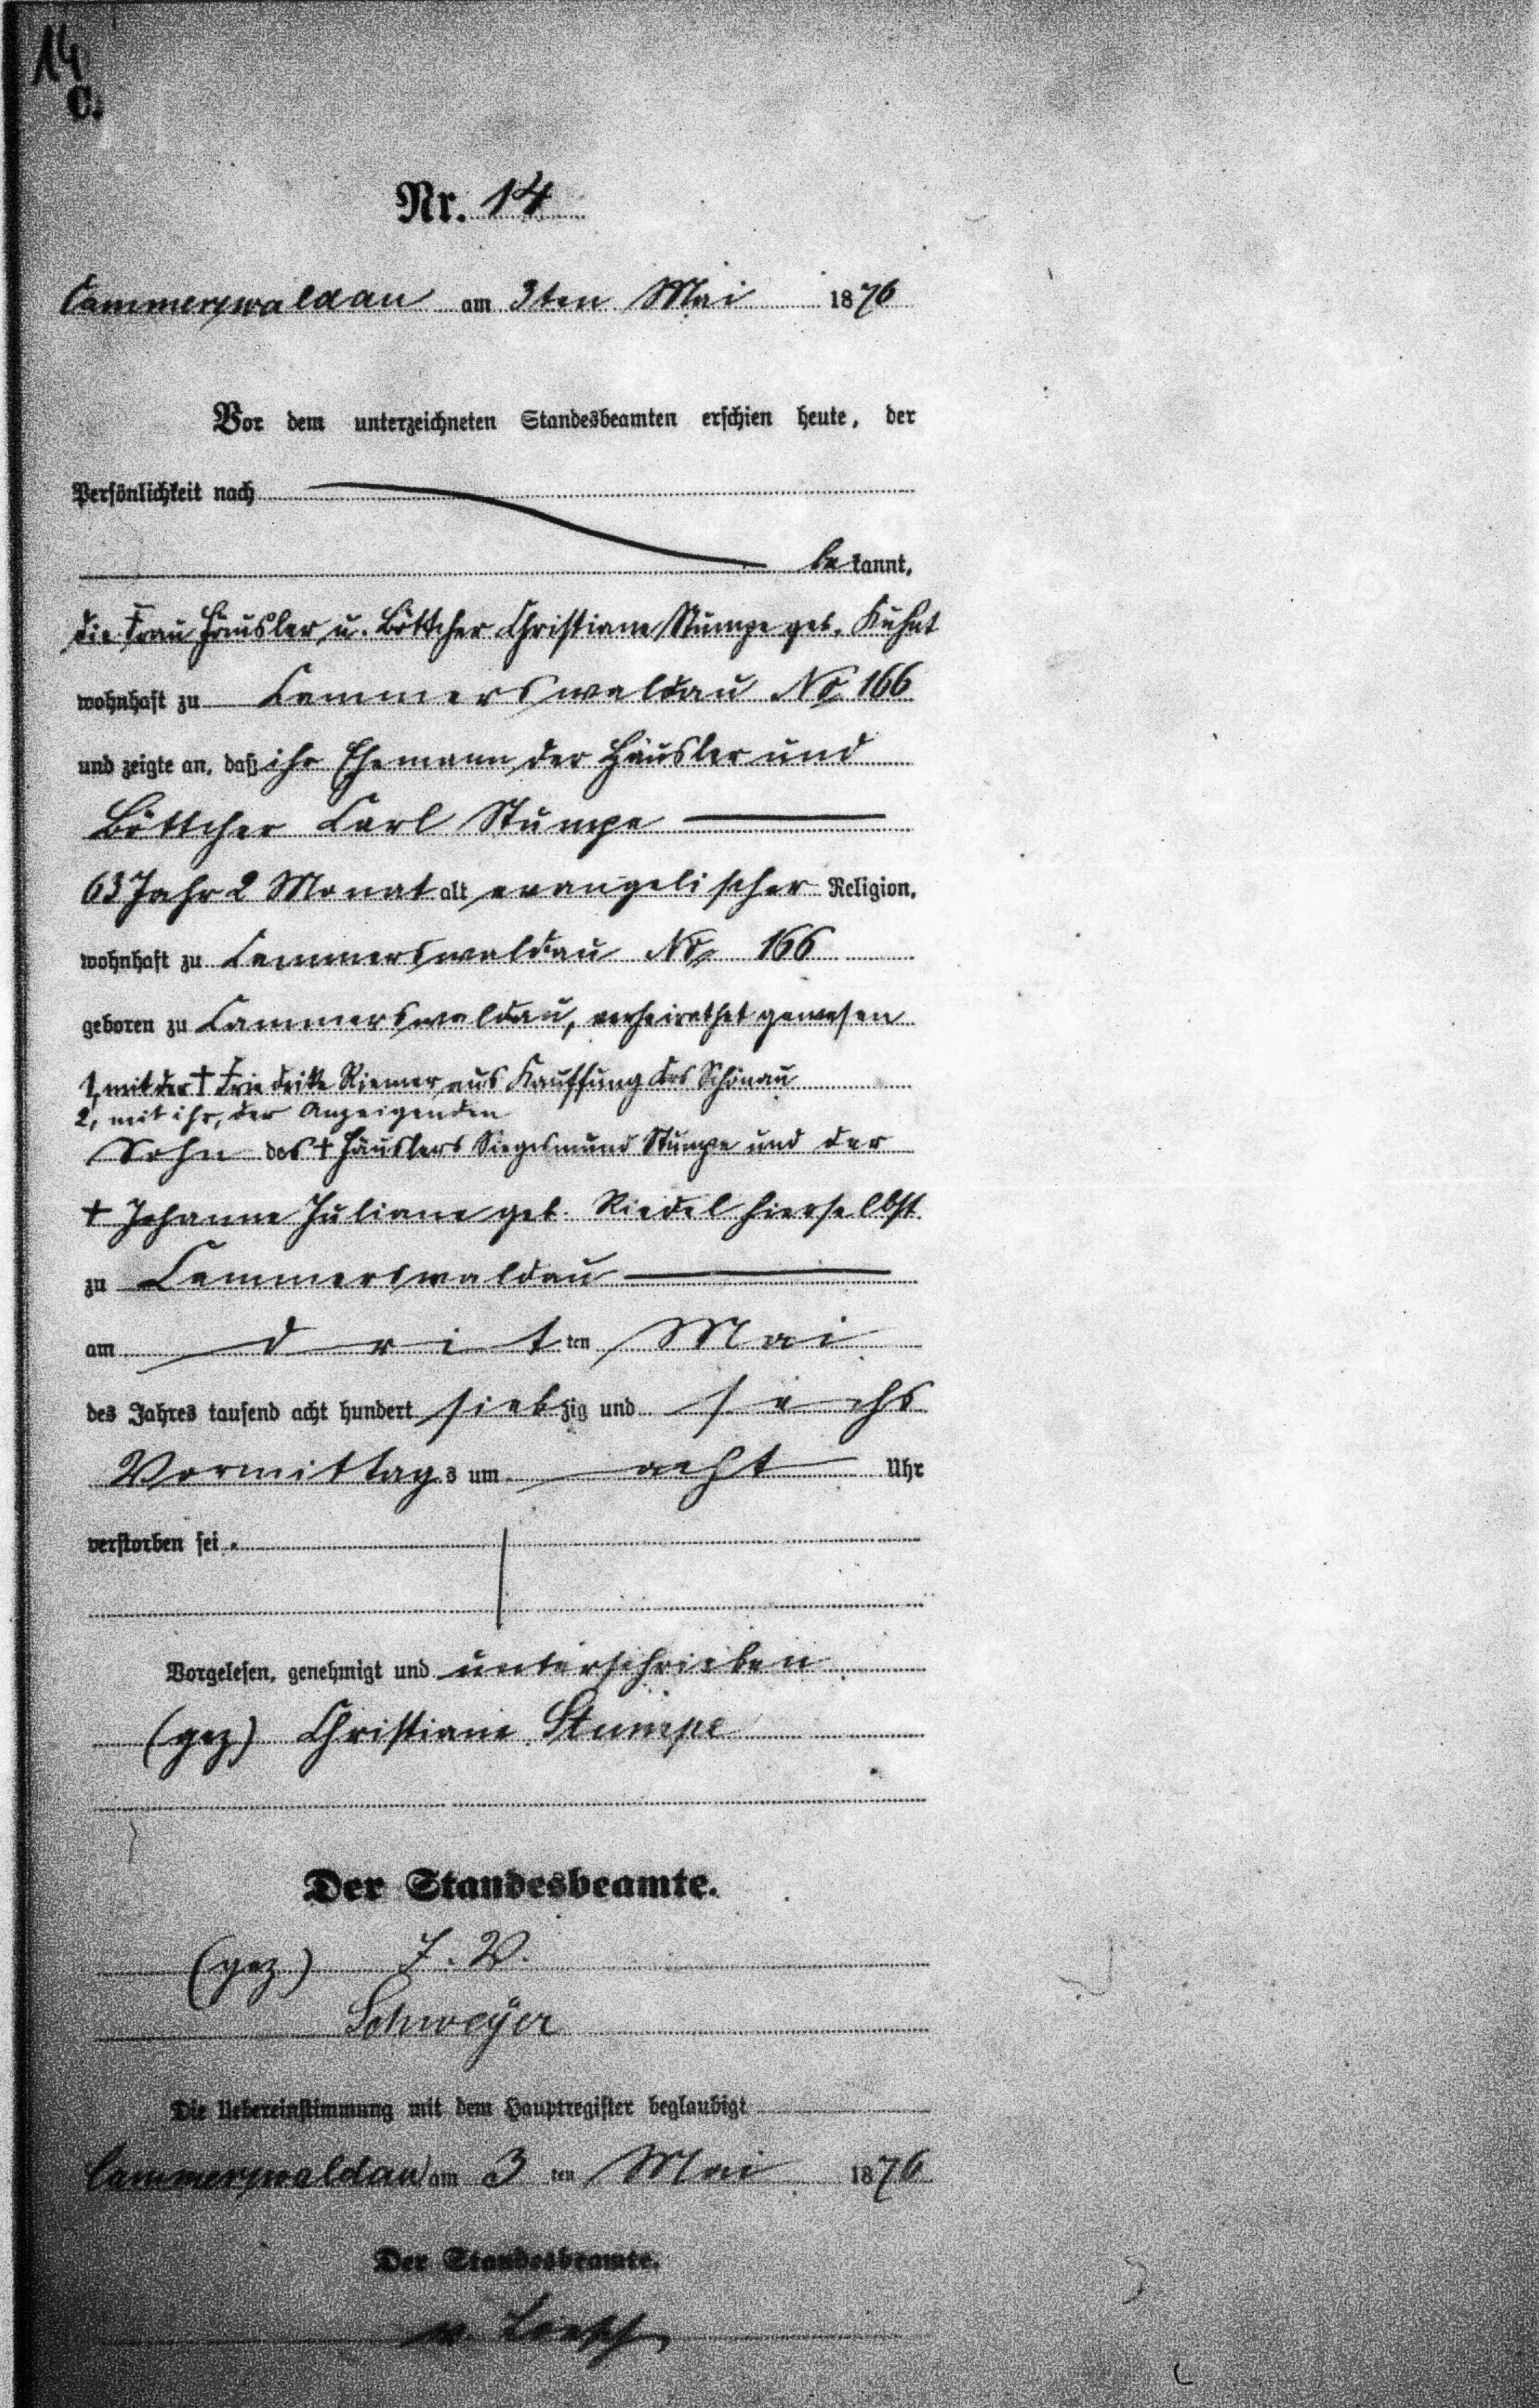 14
C.
Nr. 14
Cammerswaldau am 3ten Mai 1876
Vor dem unterzeichneten Standesbeamten erschien heute, der
Persönlichkeit nach
be kannt,
die Frau Häusler u. Böttcher Christiane Stumpe geb. Kuhnt
wohnhaft zu Cammerswaldau No 166
und zeigte an, daß ihr Ehemann der Häusler und
Böttcher Carl Stumpe
63 Jahr 2 Monat alt evangelischer Religion,
wohnhaft zu Cammerswaldau No 166
geboren zu Cammerswaldau, verheirathet gewesen
1, mit der † Friedrike Riemer aus Kauffung Krs Schönau
2, mit ihr, der Anzeigenden
Sohn des † Häuslers Siegesmund Stumpe und der
† Johanne Juliane geb. Riedel hierselbst
zu Cammerswaldau
am drit ten Mai
des Jahres tausend acht hundert sieb zig und sechs
Vormittag s um acht Uhr
verstorben sei.
Vorgelesen, genehmigt und unterschrieben
(gez) Christiane Stumpe
Der Standesbeamte.
(gez) J. V.
Schweyer
Die Uebereinstimmung mit dem Hauptregister beglaubigt
Cammerswaldau am 3 ten Mai 1876
Der Standesbeamte.